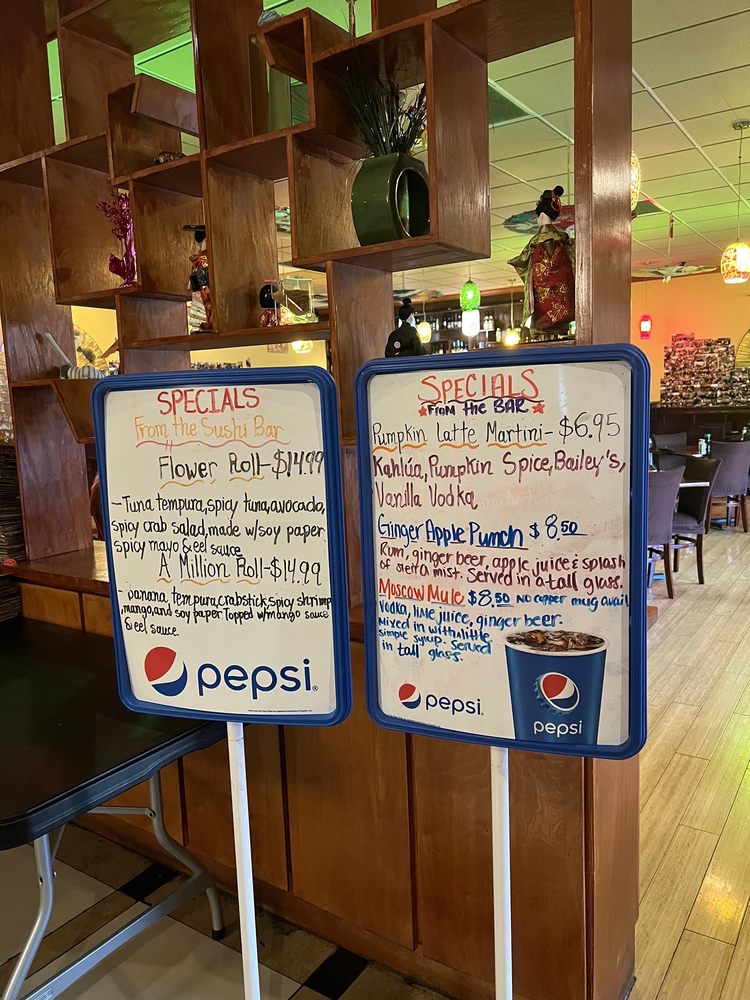 SPECIALS
From the Sushi Bar
Flower Roll-$14.99
-Tuna tempura, spicy tuna, avocado,
spicy crab salad, made w/soy paper
spicy mayo & eel sauce
A Million Roll-$14.99
- banana, tempura, crabstick, spicy shrimp
, mango, and soy paper Topped w/mango sauce
& eel sauce.
pepsi
SPECIALS
FROM the BAR
Pumpkin Latte Martini-$6.95
Kahlúa, Pumpkin Spice, Bailey's,
Vanilla Vodka
Ginger Apple Punch $8.50
Rum, ginger beer, apple juice & splash
of sierra mist. Served in a tall glass.
Moscow Mule $8.50 NO copper mug avail
Vodka, lime juice, ginger beer.
Mixed in with little
simple syrup. Served
in tall glass.
pepsi
pepsi